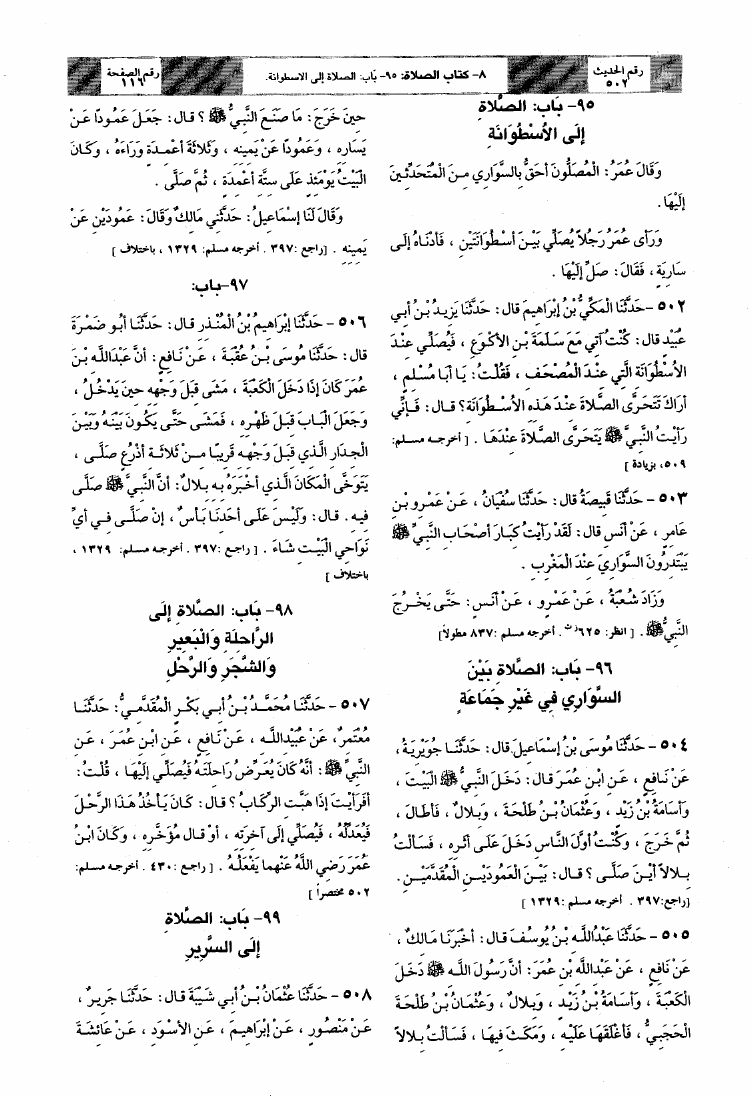 رقم الحديث
٥٠٢
٨- كتاب الصلاة: ٩٥- باب: الصلاة إلى الاسطوانة.
رقم الصفحة
١١٦
٩٥- بَابُ: الصَّلَاةِ
إِلَى الأُسْطُوَانَةِ
وَقَالَ عُمَرُ: الْمُصَلُّونَ أَحَقُّ بِالسَّوَارِي مِنَ الْمُتَحَدِّثِينَ
إِلَيْهَا.
وَرَأَى عُمَرُ رَجُلاً يُصَلِّي بَيْنَ أُسْطُوَانَتَيْنِ ، فَأَدْنَاهُ إِلَى
سَارِيَةٍ ، فَقَالَ: صَلِّ إِلَيْهَا .
٥٠٢ - حَدَّثَنَا الْمَكِّيُّ بْنُ إِبْرَاهِيمَ قال: حَدَّثَنَا يَزِيدُ بْنُ أَبِي
عُبَيْدٍ قال: كُنْتُ آتِي مَعَ سَلَمَةَ بْنِ الأَكْوَعِ ، فَيُصَلِّي عِنْدَ
الأُسْطُوَانَةِ الَّتِي عِنْدَ الْمُصْحَفِ ، فَقُلْتُ: يَا أَبَا مُسْلِمٍ ،
أَرَاكَ تَتَحَرَّى الصَّلَاةَ عِنْدَ هَذِهِ الأُسْطُوَانَةِ؟ قال: فَإِنِّي
رَأَيْتُ النَّبِيَّ ﷺ يَتَحَرَّى الصَّلَاةَ عِنْدَهَا . [ أخرجه مسلم:
٥٠٩، بزيادة ]
٥٠٣ - حَدَّثَنَا قَبِيصَةُ قال: حَدَّثَنَا سُفْيَانُ ، عَنْ عَمْرِو بْنِ
عَامِرٍ ، عَنْ أَنَسٍ قال: لَقَدْ رَأَيْتُ كِبَارَ أَصْحَابِ النَّبِيِّ ﷺ
يَبْتَدِرُونَ السَّوَارِيَ عِنْدَ الْمَغْرِبِ .
وَزَادَ شُعْبَةُ ، عَنْ عَمْرٍو ، عَنْ أَنَسٍ: حَتَّى يَخْرُجَ
النَّبِيُّ ﷺ. [ انظر: ٦٢٥ . أخرجه مسلم : ٨٣٧ مطولاً]
٩٦- بَابُ: الصَّلَاةِ بَيْنَ
السَّوَارِي فِي غَيْرِ جَمَاعَةٍ
٥٠٤ - حَدَّثَنَا مُوسَى بْنُ إِسْمَاعِيلَ قال: حَدَّثَنَا جُوَيْرِيَةُ ،
عَنْ نَافِعٍ ، عَنِ ابْنِ عُمَرَ قال: دَخَلَ النَّبِيُّ ﷺ الْبَيْتَ ،
وَأُسَامَةُ بْنُ زَيْدٍ ، وَعُثْمَانُ بْنُ طَلْحَةَ ، وَبِلَالٌ ، فَأَطَالَ ،
ثُمَّ خَرَجَ ، وَكُنْتُ أَوَّلَ النَّاسِ دَخَلَ عَلَى أَثَرِهِ ، فَسَأَلْتُ
بِلَالاً أَيْنَ صَلَّى ؟ قال: بَيْنَ الْعَمُودَيْنِ الْمُقَدَّمَيْنِ .
[راجع: ٣٩٧ . أخرجه مسلم: ١٣٢٩ ]
٥٠٥ - حَدَّثَنَا عَبْدُاللَّهِ بْنُ يُوسُفَ قال: أَخْبَرَنَا مَالِكٌ ،
عَنْ نَافِعٍ ، عَنْ عَبْدِاللَّهِ بْنِ عُمَرَ: أَنَّ رَسُولَ اللَّهِ ﷺ دَخَلَ
الْكَعْبَةَ ، وَأُسَامَةُ بْنُ زَيْدٍ ، وَبِلَالٌ ، وَعُثْمَانُ بْنُ طَلْحَةَ
الْحَجَبِيُّ ، فَأَغْلَقَهَا عَلَيْهِ ، وَمَكَثَ فِيهَا ، فَسَأَلْتُ بِلَالاً
حِينَ خَرَجَ: مَا صَنَعَ النَّبِيُّ ﷺ ؟ قال: جَعَلَ عَمُودًا عَنْ
يَسَارِهِ ، وَعَمُودًا عَنْ يَمِينِهِ ، وَثَلَاثَةَ أَعْمِدَةٍ وَرَاءَهُ ، وَكَانَ
الْبَيْتُ يَوْمَئِذٍ عَلَى سِتَّةِ أَعْمِدَةٍ ، ثُمَّ صَلَّى .
وَقَالَ لَنَا إِسْمَاعِيلُ: حَدَّثَنِي مَالِكٌ وَقَالَ: عَمُودَيْنِ عَنْ
يَمِينِهِ . [راجع :٣٩٧ . أخرجه مسلم: ١٣٢٩ ، باختلاف ]
٩٧- باب:
٥٠٦ - حَدَّثَنَا إِبْرَاهِيمُ بْنُ الْمُنْذِرِ قال: حَدَّثَنَا أَبُو ضَمْرَةَ
قال: حَدَّثَنَا مُوسَى بْنُ عُقْبَةَ ، عَنْ نَافِعٍ: أَنَّ عَبْدَاللَّهِ بْنَ
عُمَرَ كَانَ إِذَا دَخَلَ الْكَعْبَةَ ، مَشَى قِبَلَ وَجْهِهِ حِينَ يَدْخُلُ ،
وَجَعَلَ الْبَابَ قِبَلَ ظَهْرِهِ ، فَمَشَى حَتَّى يَكُونَ بَيْنَهُ وَبَيْنَ
الْجِدَارِ الَّذِي قِبَلَ وَجْهِهِ قَرِيبًا مِنْ ثَلَاثَةِ أَذْرُعٍ صَلَّى ،
يَتَوَخَّى الْمَكَانَ الَّذِي أَخْبَرَهُ بِهِ بِلَالٌ: أَنَّ النَّبِيَّ ﷺ صَلَّى
فِيهِ. قال: وَلَيْسَ عَلَى أَحَدِنَا بَأْسٌ ، إِنْ صَلَّى فِي أَيِّ
نَوَاحِي الْبَيْتِ شَاءَ . [ راجع :٣٩٧ . أخرجه مسلم: ١٣٢٩ ،
باختلاف ]
٩٨- بَابُ: الصَّلَاةِ إِلَى
الرَّاحِلَةِ وَالْبَعِيرِ
وَالشَّجَرِ وَالرَّحْلِ
٥٠٧ - حَدَّثَنَا مُحَمَّدُ بْنُ أَبِي بَكْرٍ الْمُقَدَّمِيُّ: حَدَّثَنَا
مُعْتَمِرٌ، عَنْ عُبَيْدِاللَّهِ ، عَنْ نَافِعٍ ، عَنِ ابْنِ عُمَرَ ، عَنِ
النَّبِيِّ ﷺ: أَنَّهُ كَانَ يُعَرِّضُ رَاحِلَتَهُ فَيُصَلِّي إِلَيْهَا ، قُلْتُ:
أَفَرَأَيْتَ إِذَا هَبَّتِ الرِّكَابُ ؟ قال: كَانَ يَأْخُذُ هَذَا الرَّحْلَ
فَيُعَدِّلُهُ ، فَيُصَلِّي إِلَى آخِرَتِهِ ، أَوْ قال مُؤَخَّرِهِ ، وَكَانَ ابْنُ
عُمَرَ رَضِيَ اللَّهُ عَنْهما يَفْعَلُهُ . [ راجع : ٤٣٠ . أخرجه مسلم:
٥٠٢ مختصراً ]
٩٩- بَابُ: الصَّلَاةِ
إِلَى السَّرِيرِ
٥٠٨ - حَدَّثَنَا عُثْمَانُ بْنُ أَبِي شَيْبَةَ قال: حَدَّثَنَا جَرِيرٌ ،
عَنْ مَنْصُورٍ ، عَنْ إِبْرَاهِيمَ ، عَنِ الأَسْوَدِ ، عَنْ عَائِشَةَ